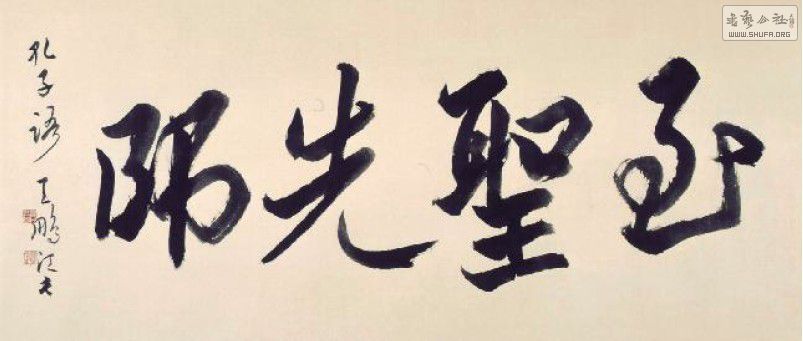 至聖先師
孔子語
王鵬江書
WWW.SHUFA.ORG